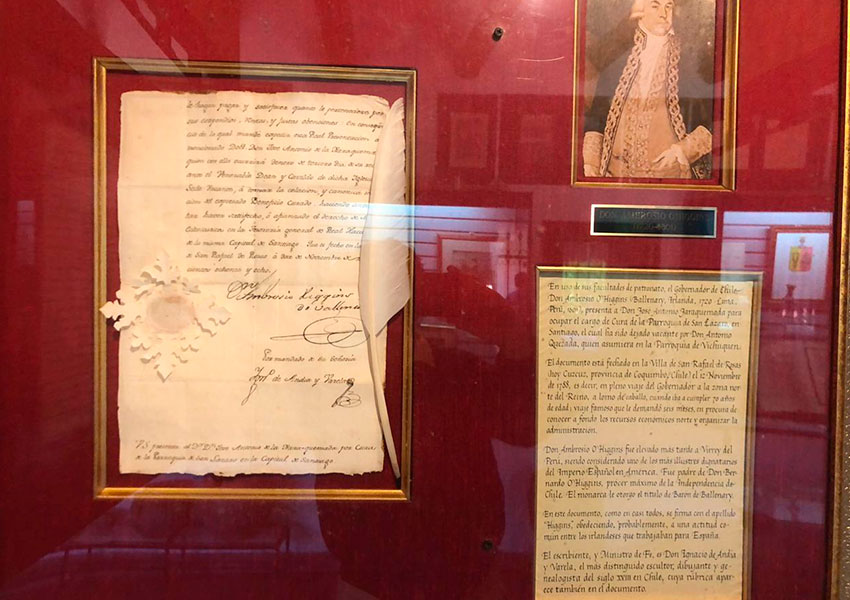 lo hagan pagar, y satisfacer quanto le pertenecieren por
sus corpondios, Rentas, y Justas obenciones. En conseq
cia de lo qual mandé expedir esta Real Presentacion, à
mencionado Dor. Don Jose Antonio de la Xaraquema
quien con ella ocurrirá dentro de tercero dia, de su
ante el Venerable Dean, y Cavildo de dicha Iglesia
Sede Vacante, à
cion al expresado Beneficio Curado, haciendo
haver satisfecho, ò afianzado el derecho de
en la Thesoreria general de Real Haci
de la misma Capital de Santiago. Que es fecha en la
de San Rafael de Rosas à doce de Noviembre de
cientos ochenta y ocho.
Ambrosio Higgins
de Vallenar
Por mandado de Su Señoria
Ign. de Andia y Varela
V.S. presenta al Dr. Dn. Jose Antonio de la Xara-quemada por Cura
de la Parroquia de San Lazaro en la Capital de Santiago
DON AMBROSIO O'HIGGINS
En uso de sus facultades de patronato, el Gobernador de Chile,
Don Ambrosio O'Higgins (Ballenary, Irlanda, 1720 - Lima,
Perú, presenta a Don José Antonio Jaraquemada para
ocupar el cargo de Cura de la Parroquia de San Lázaro en
Santiago, el cual ha sido dejado vacante por Don Antonio
Quezada, quien asumiera en la Parroquia de Vichuquen.
El documento está fechado en la Villa de San Rafael de Rosas
(hoy Cuzcuz, provincia de Coquimbo/Chile) el 12 Noviembre
de 1788, es decir, en pleno viaje del Gobernador a la zona nor-
te del Reino, a lomo de caballo, cuando iba a cumplir 70 años
de edad; viaje famoso que le demandó seis meses, en procura de
conocer a fondo los recursos económicos norte y organizar la
administración.
Don Ambrosio O'Higgins fue elevado más tarde a Virrey del
Perú, siendo considerado uno de los más ilustres dignatarios
del Imperio Español en América. Fue padre de Don Ber-
nardo O'Higgins, prócer máximo de la Independencia de
Chile. El monarca le otorgó el título de Barón de Ballenary.
En este documento, como en casi todos, se firma con el apellido
"Higgins", obedeciendo, probablemente, a una actitud co-
mún entre los irlandeses que trabajaban para España.
El escribiente, y Ministro de Fe, es Don Ignacio de Andia
y Varela, el más distinguido escultor, dibujante y ge-
nealogista del siglo XVIII en Chile, cuya rúbrica apar-
ece también en el documento.